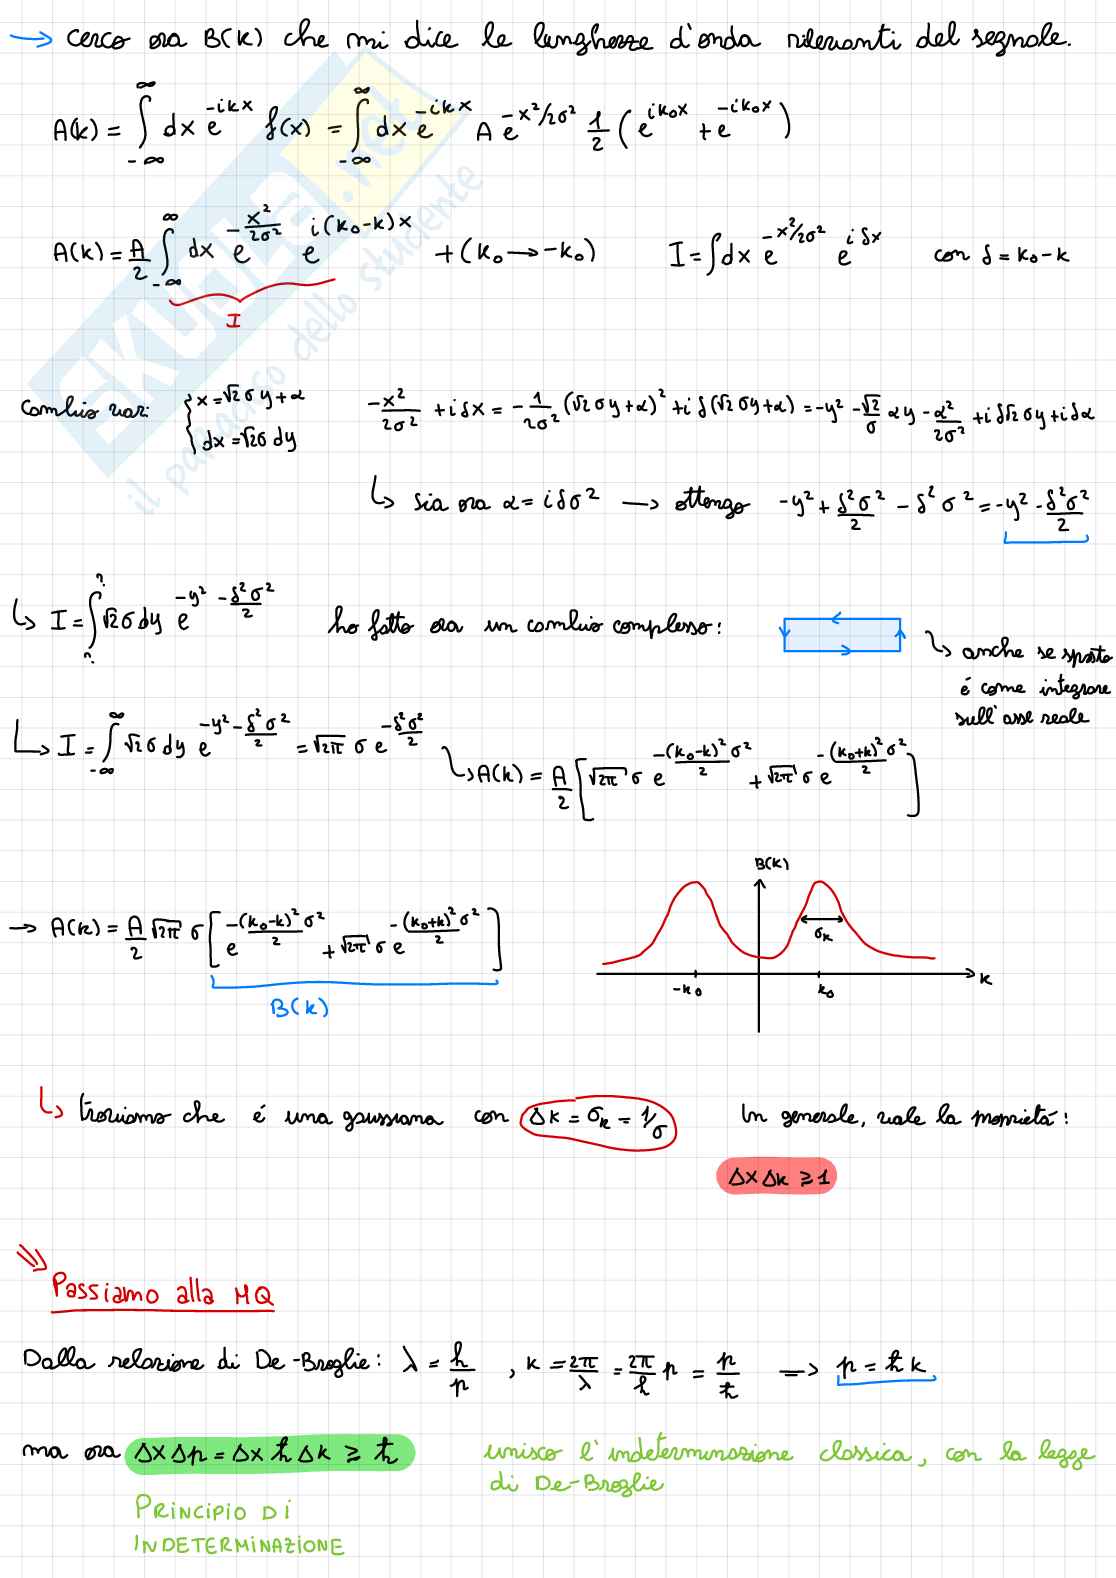 → cerco ora B(k) che mi dice le lunghezze d'onda rilevanti del segnale.
A(k) = ∫_{-∞}^{∞} dx e^{-ikx} f(x) = ∫_{-∞}^{∞} dx e^{-ikx} A e^{-x²/2σ²} 1/2 (e^{ik₀x} + e^{-ik₀x})
A(k) = A/2 ∫_{-∞}^{∞} dx e^{-x²/2σ²} e^{i(k₀-k)x} + (k₀ → -k₀) I = ∫dx e^{-x²/2σ²} e^{iδx} con δ = k₀-k
I
Cambio var: { x = √2 σy + α -x²/2σ² + iδx = -1/2σ² (√2 σy + α)² + iδ(√2 σy + α) = -y² - √2/σ αy - α²/2σ² + iδ√2 σy + iδα
dx = √2σ dy
↳ sia ora α = iδσ² → ottengo -y² + δ²σ²/2 - δ²σ² = -y² - δ²σ²/2
↳ I = ∫_{?}^{?} √2σ dy e^{-y² - δ²σ²/2} ho fatto ora un cambio complesso: ↳ anche se sposto
é come integrare
sull'asse reale
↳ I = ∫_{-∞}^{∞} √2σ dy e^{-y² - δ²σ²/2} = √2π σ e^{-δ²σ²/2}
↳ A(k) = A/2 [√2π σ e^{-(k₀-k)²σ²/2} + √2π σ e^{-(k₀+k)²σ²/2}]
→ A(k) = A/2 √2π σ [e^{-(k₀-k)²σ²/2} + √2π σ e^{-(k₀+k)²σ²/2}]
B(k)
B(k)
σₖ
-k₀ k₀ k
↳ troviamo che é una gaussiana con Δk = σₖ = 1/σ In generale, vale la proprietà:
Δx Δk ≥ 1
Passiamo alla MQ
Dalla relazione di De-Broglie: λ = h/p , k = 2π/λ = 2π/h p = p/ħ → p = ħk
ma ora Δx Δp = Δx ħ Δk ≥ ħ unisco l'indeterminazione classica, con la legge
di De-Broglie
PRINCIPIO DI
INDETERMINAZIONE
SKUOLA.net
il paradiso dello studente